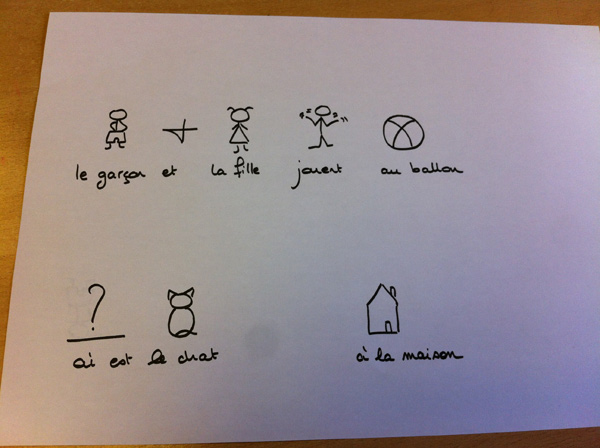 le garçon et la fille jouent au ballon
?
où est le chat à la maison